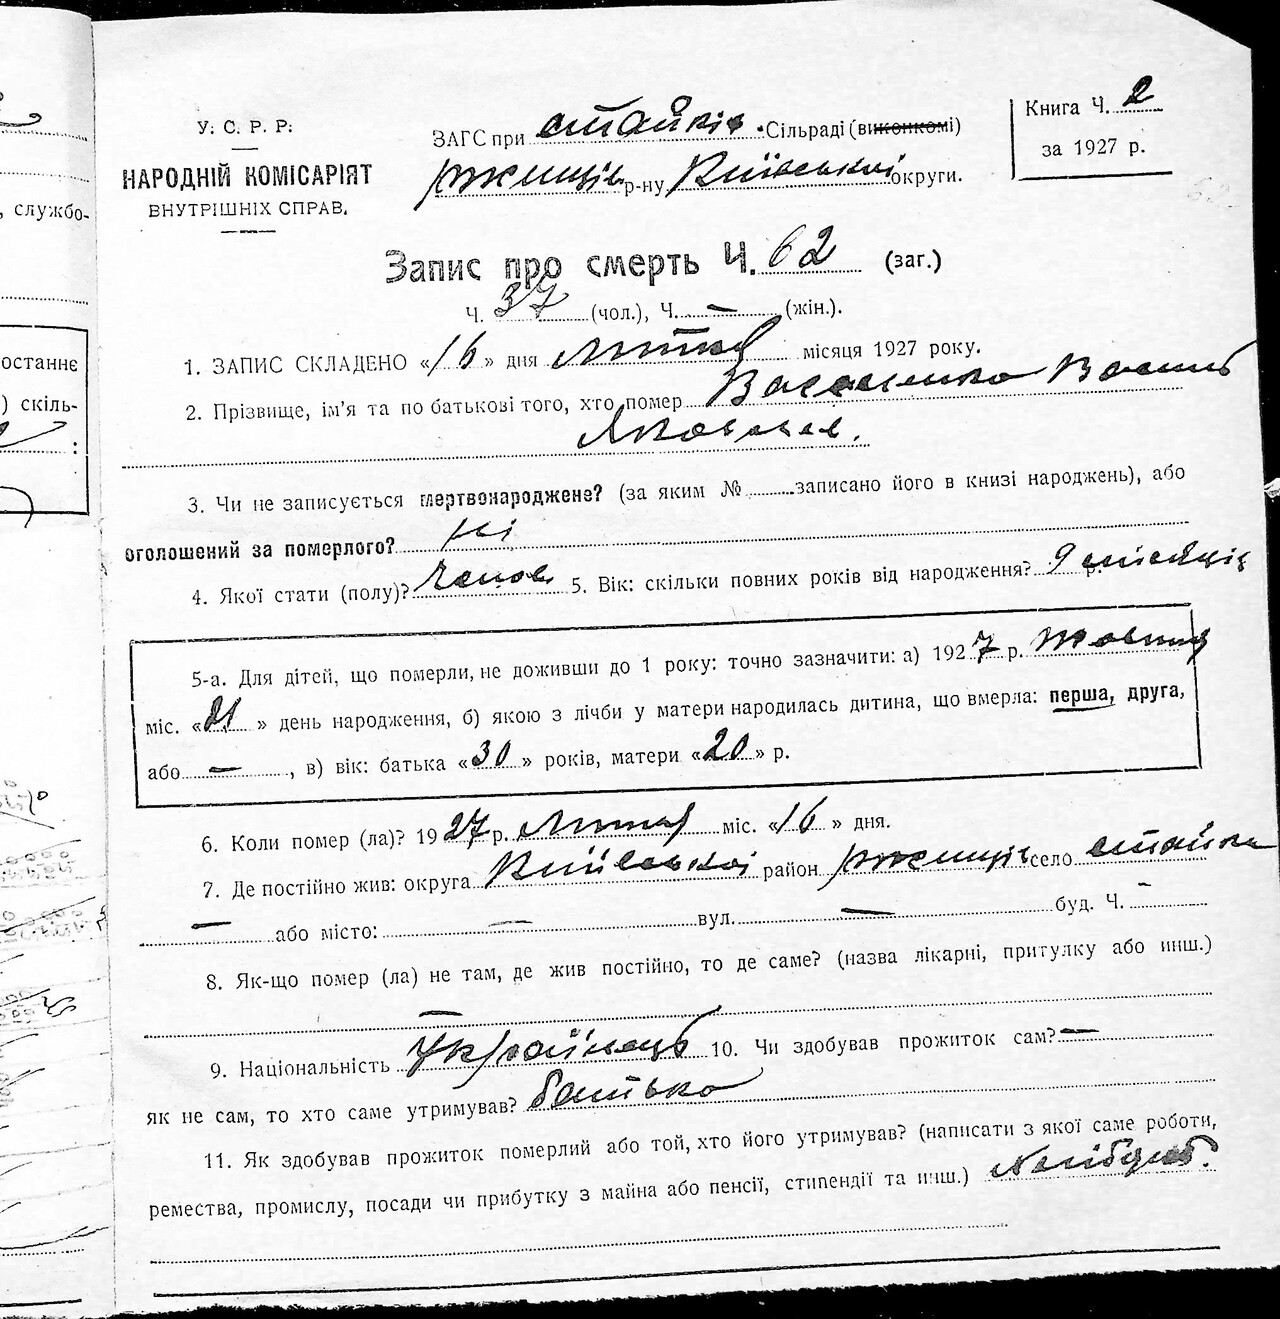 У. С. Р. Р.
НАРОДНІЙ КОМІСАРІЯТ
ВНУТРІШНІХ СПРАВ.
ЗАГС при Стайків Сільраді (виконкомі)
Ржищів р-ну Київської округи.
Книга Ч. 2
за 1927 р.
Запис про смерть Ч. 62 (заг.)
Ч. 37 (чол.), Ч. — (жін.).
1. ЗАПИС СКЛАДЕНО «16» дня Лютня місяця 1927 року.
2. Прізвище, ім'я та по батькові того, хто помер Василь
3. Чи не записується мертвонароджене? (за яким № записано його в книзі народжень), або
оголошений за померлого? Ні
4. Якої стати (полу)? Чолов 5. Вік: скільки повних років від народження? 9 місяців р.
5-а. Для дітей, що померли, не доживши до 1 року: точно зазначити: а) 1927 р.
міс. «21» день народження, б) якою з лічби у матери народилась дитина, що вмерла: перша, друга,
або — , в) вік: батька «30» років, матери «20» р.
6. Коли помер (ла)? 1927 р. Лютня міс. «16» дня.
7. Де постійно жив: округа Київської район Ржищів село Стайки
— або місто: — вул. — буд. Ч. —
8. Як-що помер (ла) не там, де жив постійно, то де саме? (назва лікарні, притулку або инш.)
—
9. Національність Українець 10. Чи здобував прожиток сам? —
як не сам, то хто саме утримував? батько
11. Як здобував прожиток померлий або той, хто його утримував? (написати з якої саме роботи,
ремества, промислу, посади чи прибутку з майна або пенсії, стипендії та инш.) Хлібороб.
, службо-
останнє
) скіль-
: